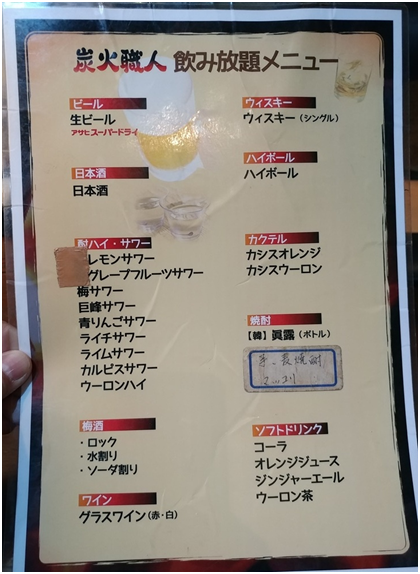 炭火職人 飲み放題メニュー
ビール
生ビール
アサヒスーパードライ
日本酒
日本酒
酎ハイ・サワー
レモンサワー
グレープフルーツサワー
梅サワー
巨峰サワー
青りんごサワー
ライチサワー
ライムサワー
カルピスサワー
ウーロンハイ
梅酒
・ロック
・水割り
・ソーダ割り
ワイン
グラスワイン(赤・白)
ウィスキー
ウィスキー(シングル)
ハイボール
ハイボール
カクテル
カシスオレンジ
カシスウーロン
焼酎
【韓】眞露(ボトル)
芋、麦焼酎
ソフトドリンク
コーラ
オレンジジュース
ジンジャーエール
ウーロン茶